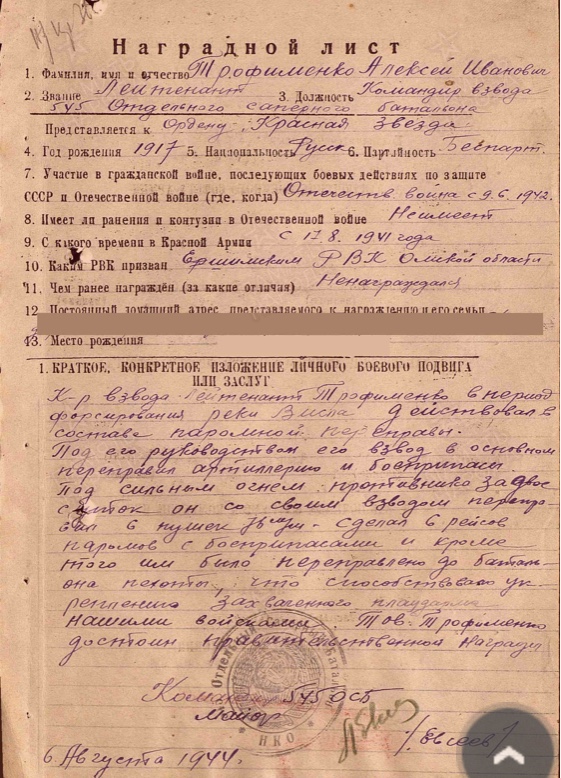 Наградной лист
1. Фамилия, имя и отчество Трофименко Алексей Иванович
2. Звание Лейтенант 3. Должность Командир взвода
545 Отдельного саперного батальона
Представляется к Ордену "Красная Звезда"
4. Год рождения 1917 5. Национальность Русск 6. Партийность Беспарт.
7. Участие в гражданской войне, последующих боевых действиях по защите
СССР и Отечественной войне (где, когда) Отечеств война с 9.6.1942.
8. Имеет ли ранения и контузии в Отечественной войне Неимеет
9. С какого времени в Красной Армии с 17.8.1941 года
10. Каким РВК призван РВК Омской области
11. Чем ранее награждён (за какие отличия) Ненаграждался
12 Постоянный домашний адрес, представляемого к награждению и его семьи
13. Место рождения
1. КРАТКОЕ, КОНКРЕТНОЕ ИЗЛОЖЕНИЕ ЛИЧНОГО БОЕВОГО ПОДВИГА
ИЛИ ЗАСЛУГ
К-р взвода Лейтенант Трофименко в период
форсирования реки Висла действовал в
составе паромной переправы.
Под его руководством его взвод в основном
переправил артиллерию и боеприпасы.
Под сильным огнем противника за двое
суток он со своим взводом перепра-
вил 6 пушек 76 сделал 6 рейсов
паромов с боеприпасами и кроме
того им было переправлено до баталь-
она пехоты, что способствовало ук-
реплению захваченного плацдарма
нашими войсками. Тов. Трофименко
достоин правительственной награды
Команд 545 ОСБ
Майор
/Евсеев/
НКО
6 Августа 1944.